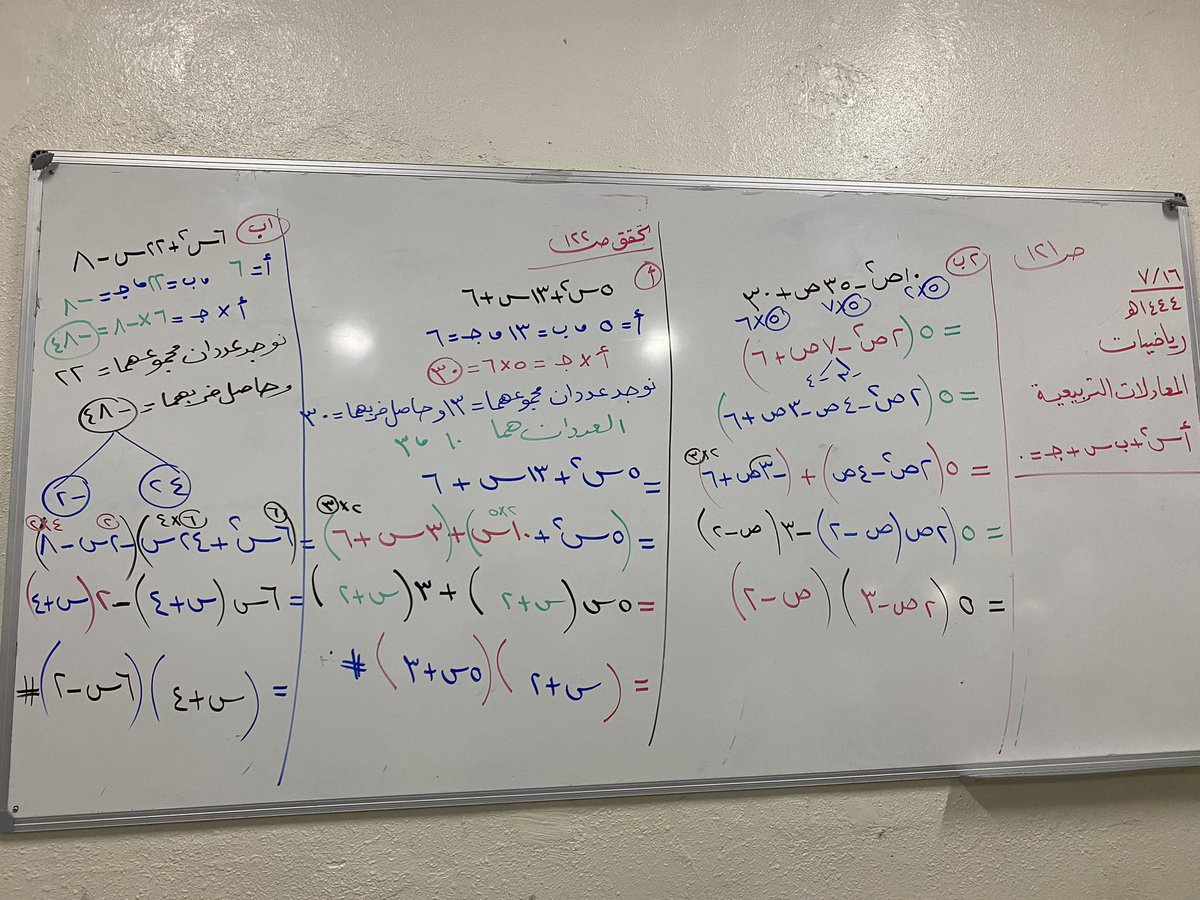 ص ١٢١
٧/١٦
١٤٤٤هـ
رياضيات
المعادلات التربيعية
أس٢+ب س+جـ=٠
٢ب
١٠ص٢-٣٥ص+٣٠
٥×٢ ٥×٧ ٥×٦
=٥(٢ص٢-٧ص+٦)
-٣ -٤
=٥(٢ص٢-٤ص-٣ص+٦)
=٥(٢ص٢-٤ص)+(-٣ص+٦) ٢×٣
=٥(٢ص(ص-٢)-٣(ص-٢)
=٥(٢ص-٣)(ص-٢)
تحقق ص١٢٢
أ
٥س٢+١٣س+٦
أ=٥ ، ب=١٣ ، جـ=٦
أ×جـ=٥×٦=٣٠
نوجد عددان مجموعهما=١٣ وحاصل ضربهما=٣٠
العددان هما ١٠ ، ٣
=٥س٢+١٣س+٦
٢×٥ ٢×٣
=(٥س٢+١٠س)+(٣س+٦)
=٥س(س+٢)+٣(س+٢)
=(س+٢)(٥س+٣)#
١ب
٦س٢+٢٢س-٨
أ=٦ ، ب=٢٢ ، جـ=-٨
أ×جـ=٦×-٨=-٤٨
نوجد عددان مجموعهما=٢٢
وحاصل ضربهما=-٤٨
٢٤ -٢
٦ ٦×٤ ٢ ٤×٢
=(٦س٢+٢٤س)(-٢س-٨)
=٦س(س+٤)-٢(س+٤)
=(س+٤)(٦س-٢)#